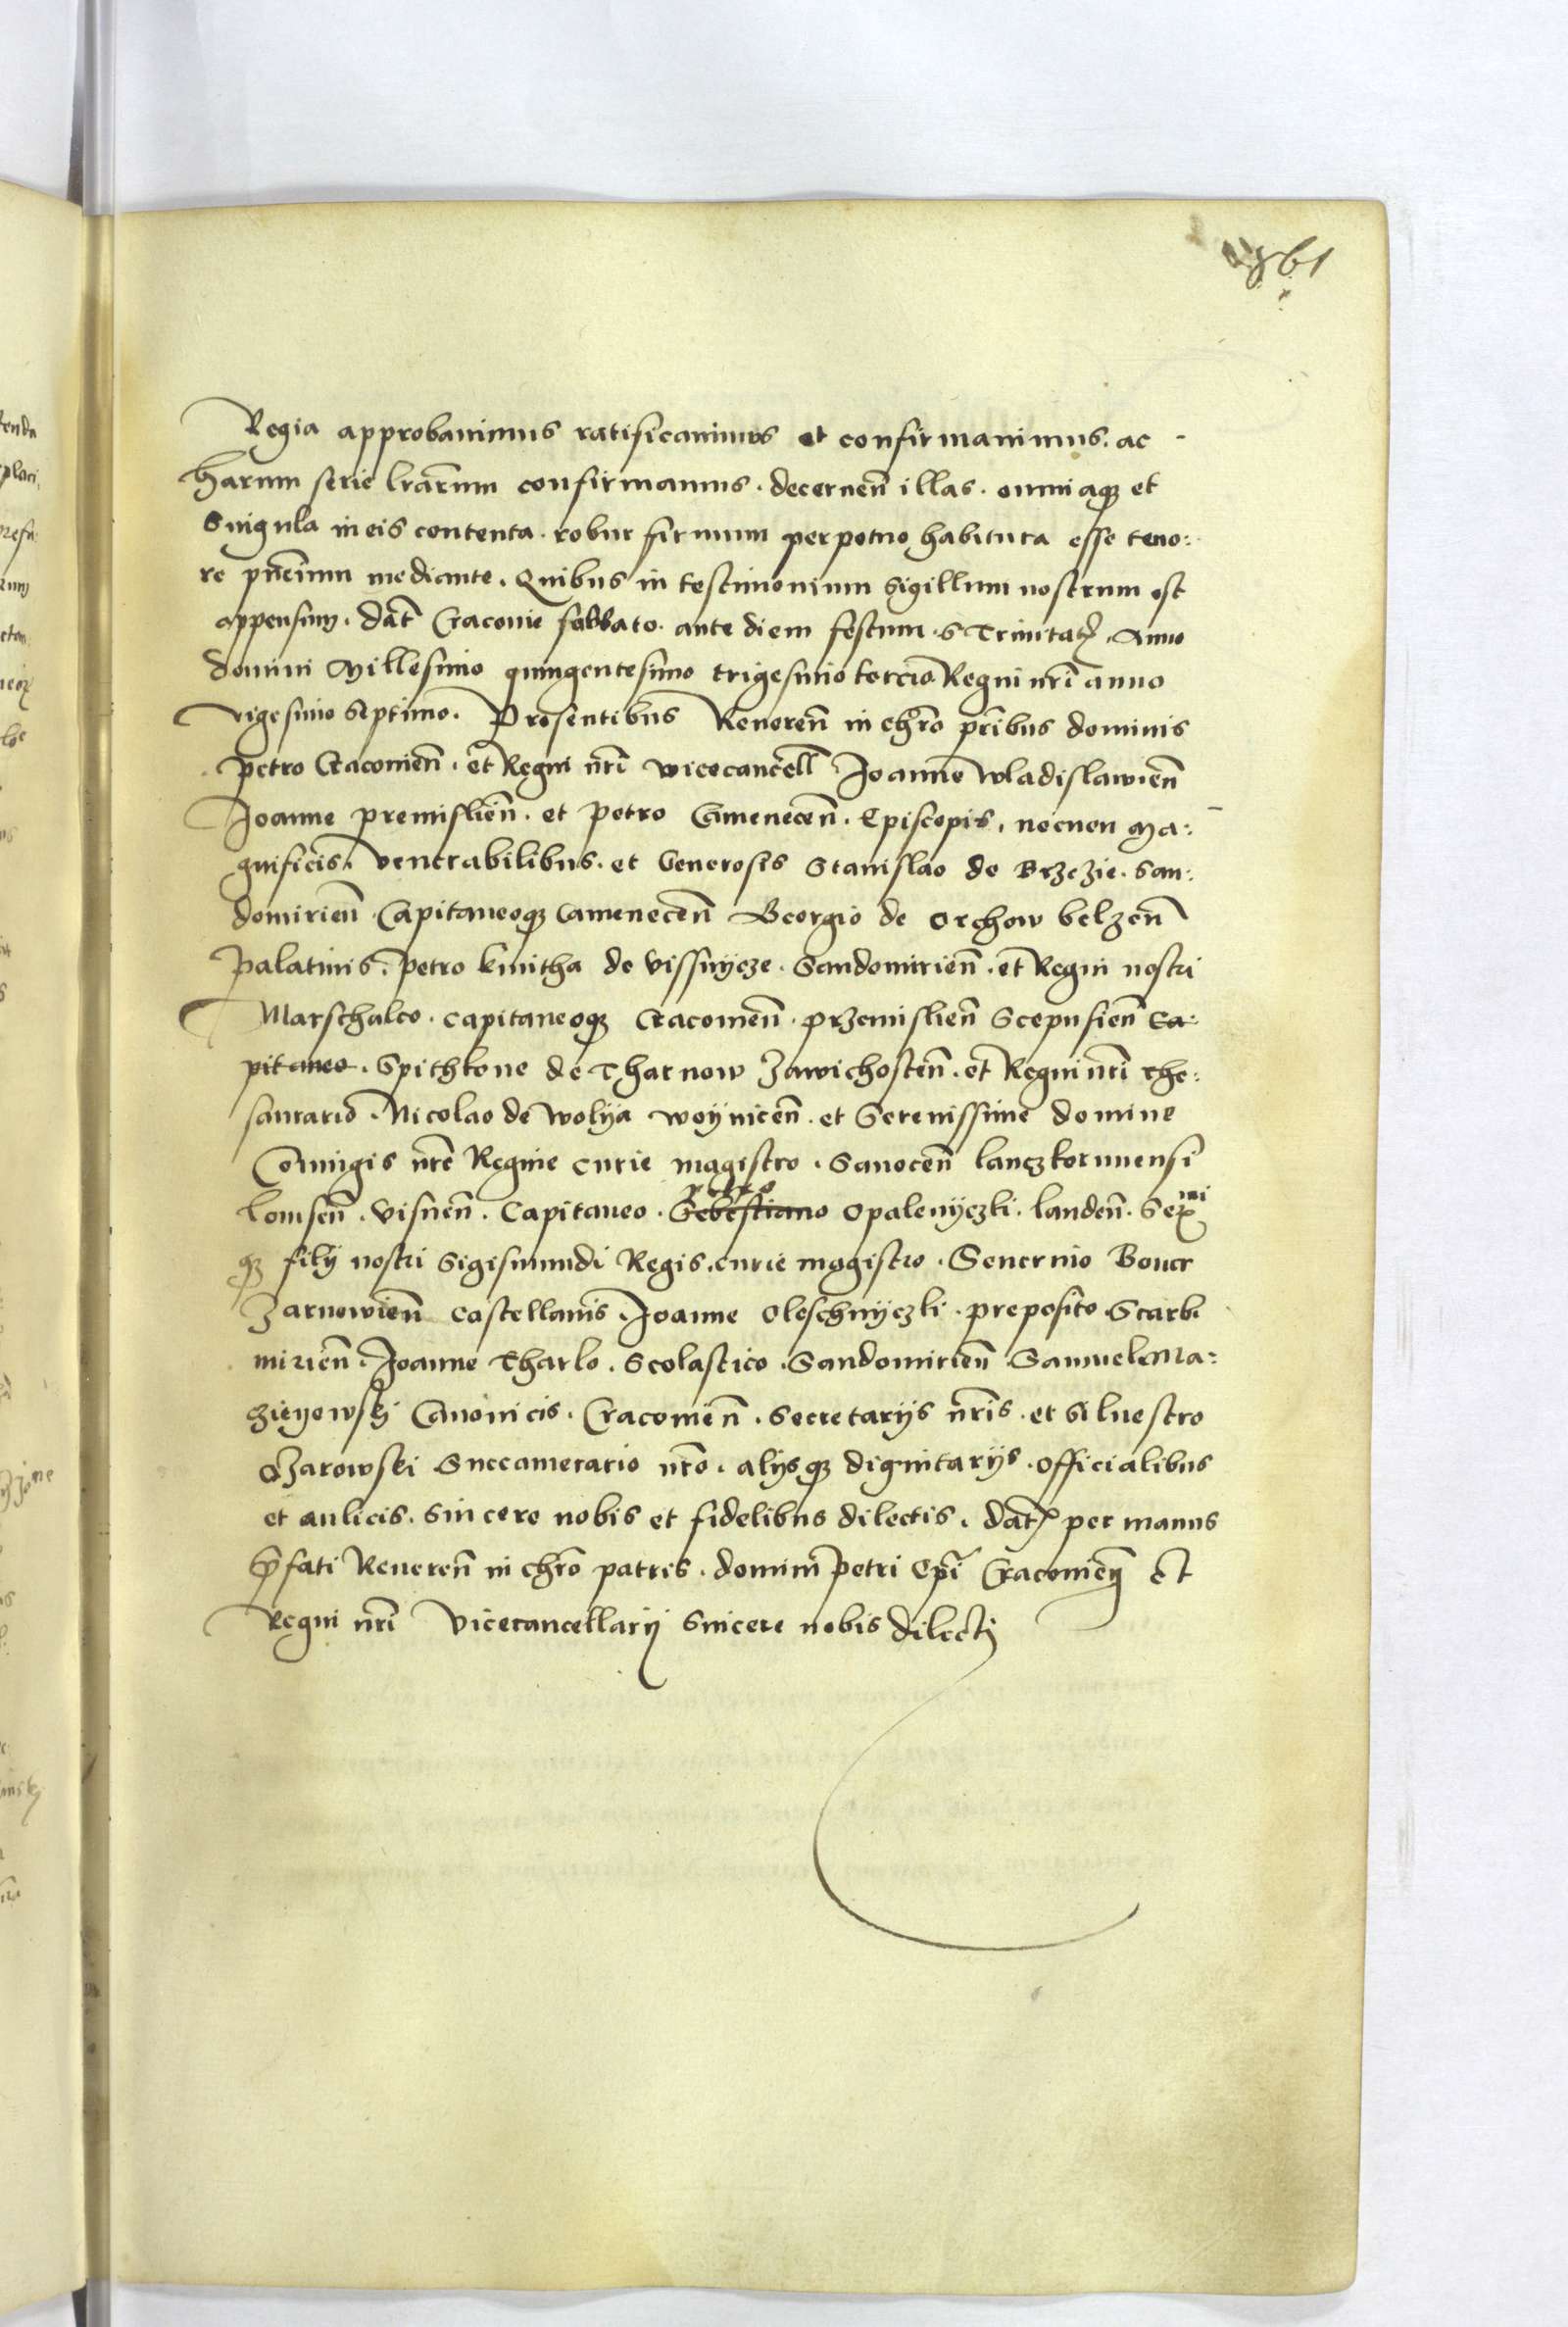 861
Regia approbavimus ratificavimus et confirmavimus. ac -
harum serie lrarum confirmamus. decernen illas. omniaqȝ et
Singula in eis contenta. robur firmum perpetuo habitura esse teno:
re pncium mediante. Quibus in testimonium Sigillum nostrum est
appensum. dat Cracovie sabbato. ante diem festum. S Trinitatꝭ. Anno
domini Millesimo quingentesimo trigesimo tercio Regni nri anno
vigesimo septimo. Presentibus Reveren in chro pribus dominis
Petro Cracovien. et Regni nri vicecancell Joanne Wladislawien
Joanne premislien. et Petro Camenecen. Episcopis. necnon Ma:
gnificis. Venerabilibus. et Generosis Stanislao de Brzezie. San:
domirien Capitaneoqȝ Camenecen Georgio de Crchow belzen
Palatinis. Petro kmitha de vissnycze. Sandomirien. et Regni nostri
Marschalco. capitaneoqȝ Cracovien. przemislien Scepusien Ca:
pitaneo. Spithkone de Tharnow Zawichosten. et Regni nri the:
saurario. Nicolao de Wolya Woynicen. et Serenissime domine
Coniugis nre Regine curie magistro. Sanocen lanczkorunensi
lomsen. visnen. Capitaneo. Sebestiano petro Opalenyczki. landen. Serᵐⁱ
qȝ filij nostri Sigismundi Regis. curie magistro. Severino Boner
Zarnowien castellanis. Joanne Oleschnyczki. preposito Scarbi
mirien. Joanne Tharlo. Scolastico. Sandomirien Samuele Ma:
zieyowskj Canonicis. Cracovien. Secretarijs nris. et Silvestro
Ozarowski Succamerario nro. alijsqȝ dignitarijs. officialibus
et aulicis. sincere nobis et fidelibus dilectis. datꝭ per manus
pfati Reveren in chro patris. domini Petri Epi Cracovien et
Regni nri Vicecancellarij Sincere nobis dilectj